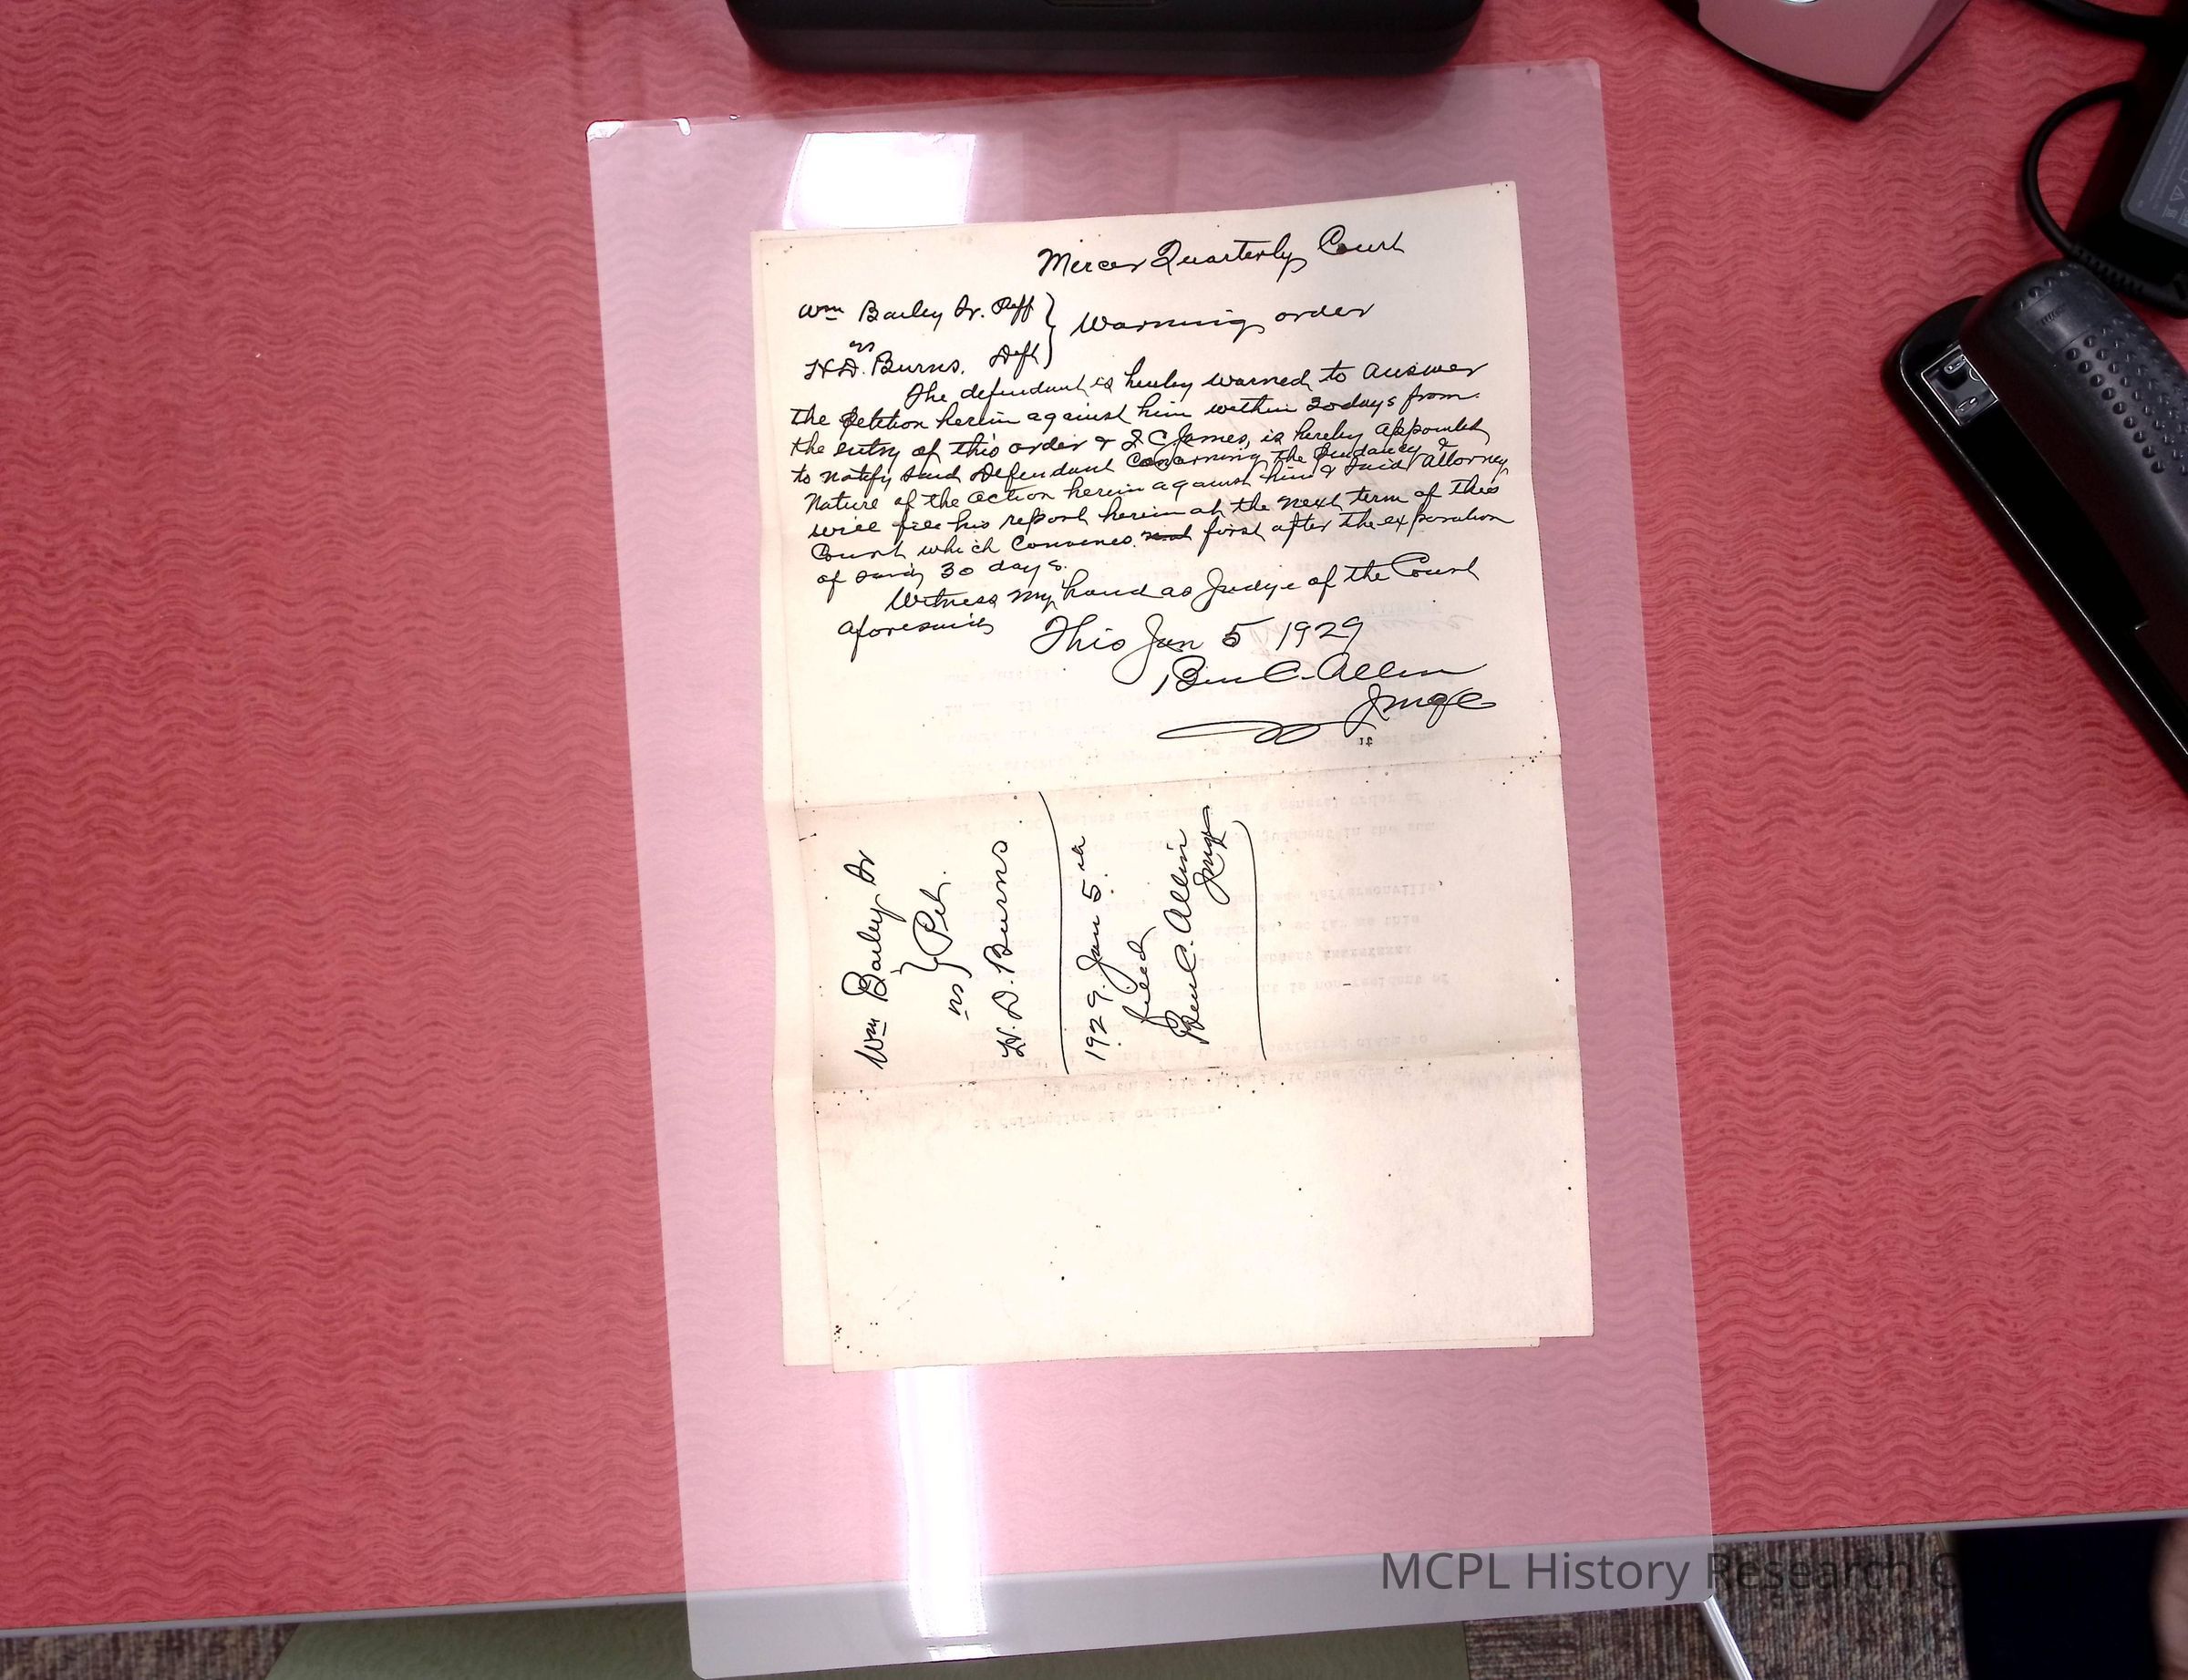 Mercer Quarterly Court
Wm Bailey Sr. Plff } Warning order
vs
H.D. Burns, Deft
The defendant is hereby warned to answer
the petition herein against him within 30 days from
the entry of this order & J C James, is hereby appointed
to notify said Defendant Concerning the pendancy &
Nature of the action herein against him & said Attorney
will file his report herein at the next term of this
Court which convenes first after the expiration
of said 30 days.
Witness my hand as Judge of the Court
aforesaid This Jan 5 1929
Ben C. Allin
Judge
Wm Bailey Sr
vs } Pet.
H. D. Burns
1929. Jan 5th
filed
Ben C. Allin
Judge
MCPL History Research C